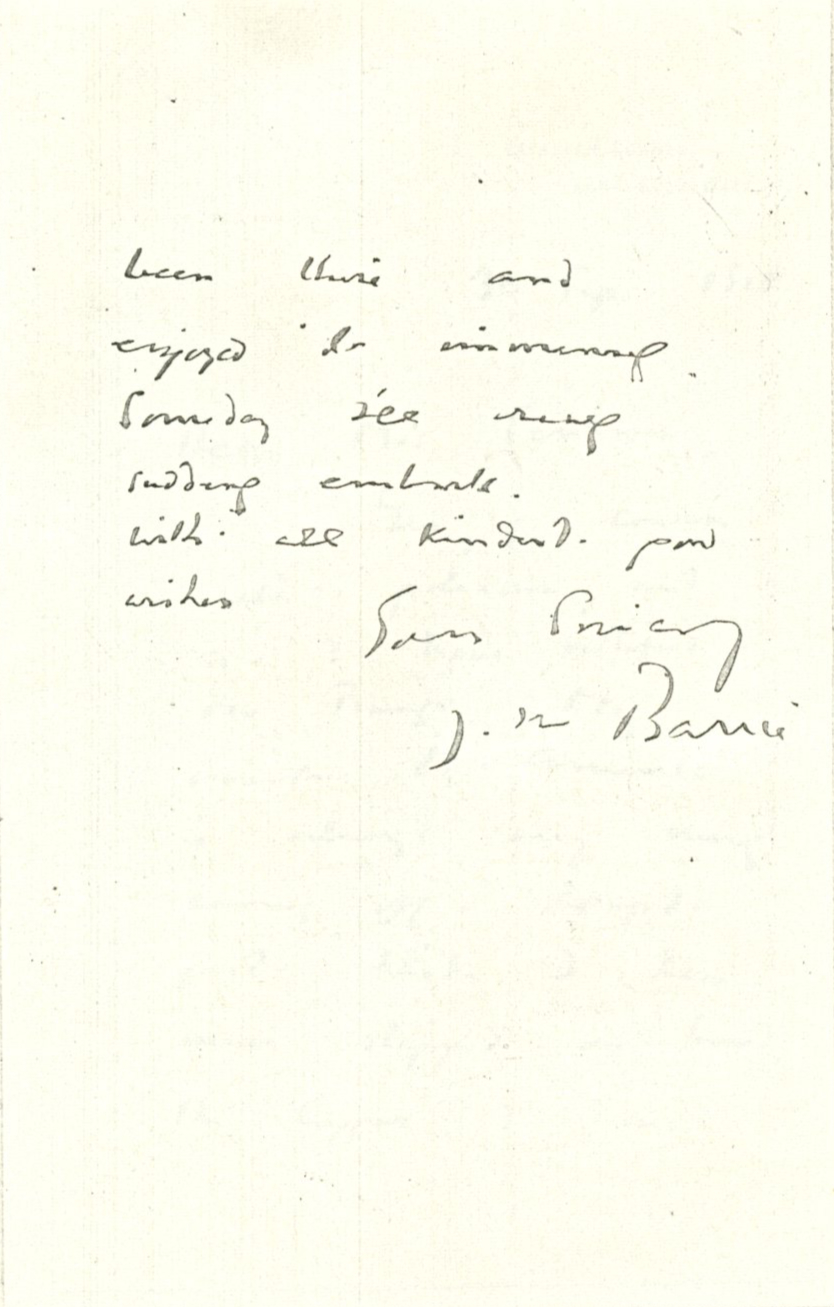 been there and
enjoyed it immensely.
Someday I'll
suddenly embark.
With all kindest good
wishes
Yours Sincerely
J. M. Barrie